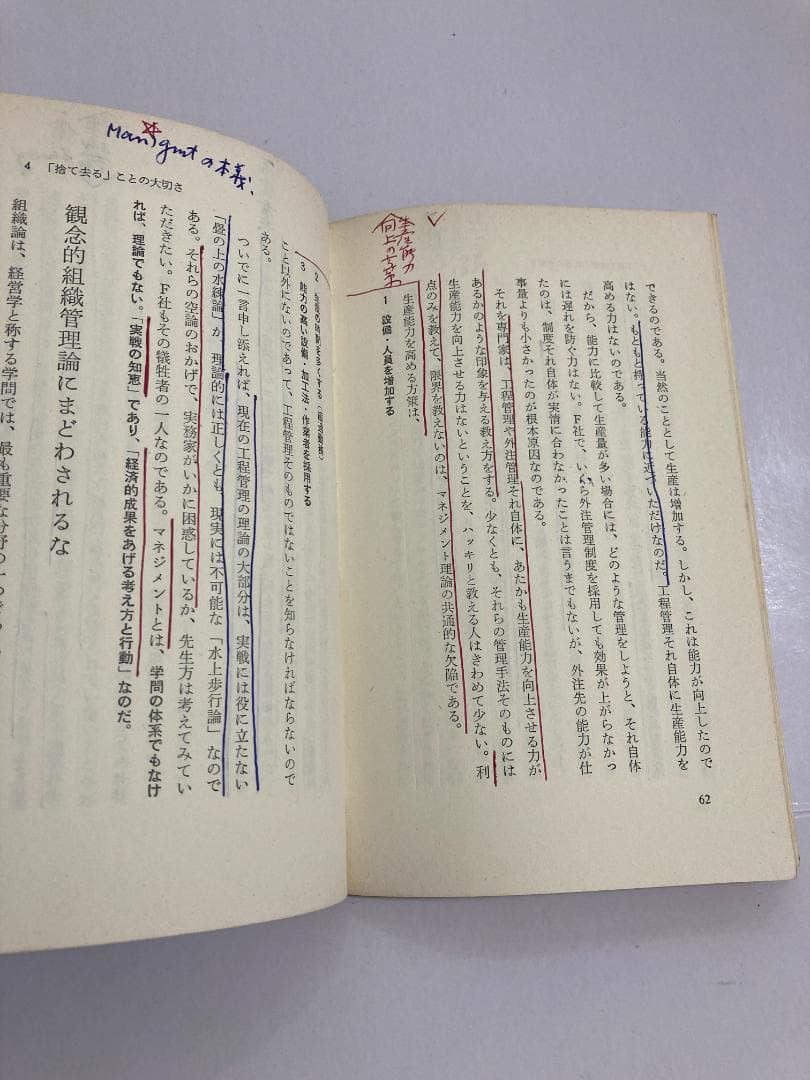 62
できるのである。当然のこととして生産は増加する。しかし、これは能力が向上したので
はない。もともと持っている能力に近づいただけなのだ。工程管理それ自体に生産能力を
高める力はないのである。
だから、能力に比較して生産量が多い場合には、どのような管理をしようと、それ自体
には遅れを防ぐ力はない。F社で、いくら外注管理制度を採用しても効果が上がらなかっ
たのは、制度それ自体が実情に合わなかったことは言うまでもないが、外注先の能力が仕
事量よりも小さかったのが根本原因なのである。
それを専門家は、工程管理や外注管理それ自体に、あたかも生産能力を向上させる力が
あるかのような印象を与える教え方をする。少なくとも、それらの管理手法そのものには
生産能力を向上させる力はないということを、ハッキリと教える人はきわめて少ない。利
点のみを教えて、限界を教えないのは、マネジメント理論の共通的な欠陥である。
生産能力を高める方策は、
1 設備・人員を増加する
生産能力
向上の方策
Managmtの本義、
4 「捨て去る」ことの大切さ
2
3 能力の高い設備・加工法・作業者を採用する
こと以外にないのであって、工程管理そのものではないことを知らなければならないので
ある。
ついでに一言申し添えれば、現在の工程管理の理論の大部分は、実戦には役に立たない
「畳の上の水練論」か、理論的には正しくとも、現実には不可能な「水上歩行論」なので
ある。それらの空論のおかげで、実務家がいかに困惑しているか、先生方は考えてみてい
ただきたい。F社もその犠牲者の一人なのである。マネジメントとは、学問の体系でもなけ
れば、理論でもない。「実戦の知恵」であり、「経済的成果をあげる考え方と行動」なのだ。
観念的組織管理論にまどわされるな
組織論は、経営学と称する学問では、最も重要な分野の一つである